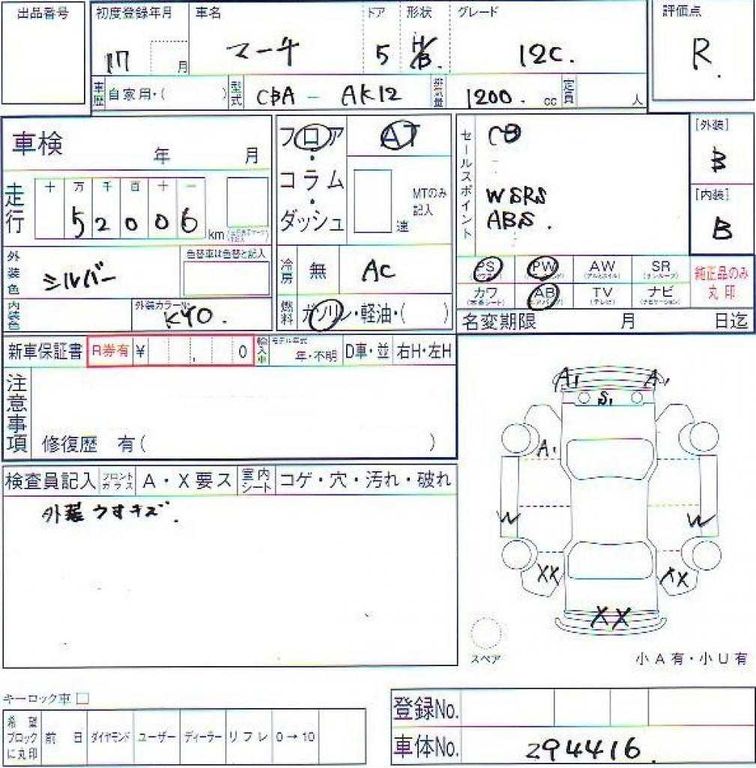 出品番号 初度登録年月 車名 ドア 形状 グレード 評価点
17 月 マーチ 5 H/B. 12C. R.
車歴 自家用・( ) 型式 CBA - AK12 排気量 1200. cc 定員 人
車検 年 月 フロア・コラム・ダッシュ AT MTのみ記入 速
セールスポイント CD
WSRS
ABS.
[外装] B
[内装] B
走行 十 万 千 百 十 一
52006 km
外装色 シルバー 色替車は色替と記入
内装色 外装カラーNo. KY0.
冷房 無 AC
燃料 ガソリン・軽油・( )
PS PW AW SR 純正品のみ丸印
カワ AB TV ナビ
(アルミホイル) (サンルーフ) (本革シート) (エアバッグ) (テレビ) (ナビゲーション)
名変期限 月 日迄
新車保証書 R券有 ¥ , 0 輸入車 モデル年式 年・不明 D車・並 右H・左H
注意事項
修復歴 有( )
検査員記入 フロントガラス A・X要ス 室内シート コゲ・穴・汚れ・破れ
外装うすキズ.
A1 A1
S1
A1
W W
XX XX
XX
スペア 小A有・小U有
キーロック車 □
希望ブロックに丸印 前 日 ダイヤモンド ユーザー ディーラー リフレ 0→10
登録No.
車体No. 294416.